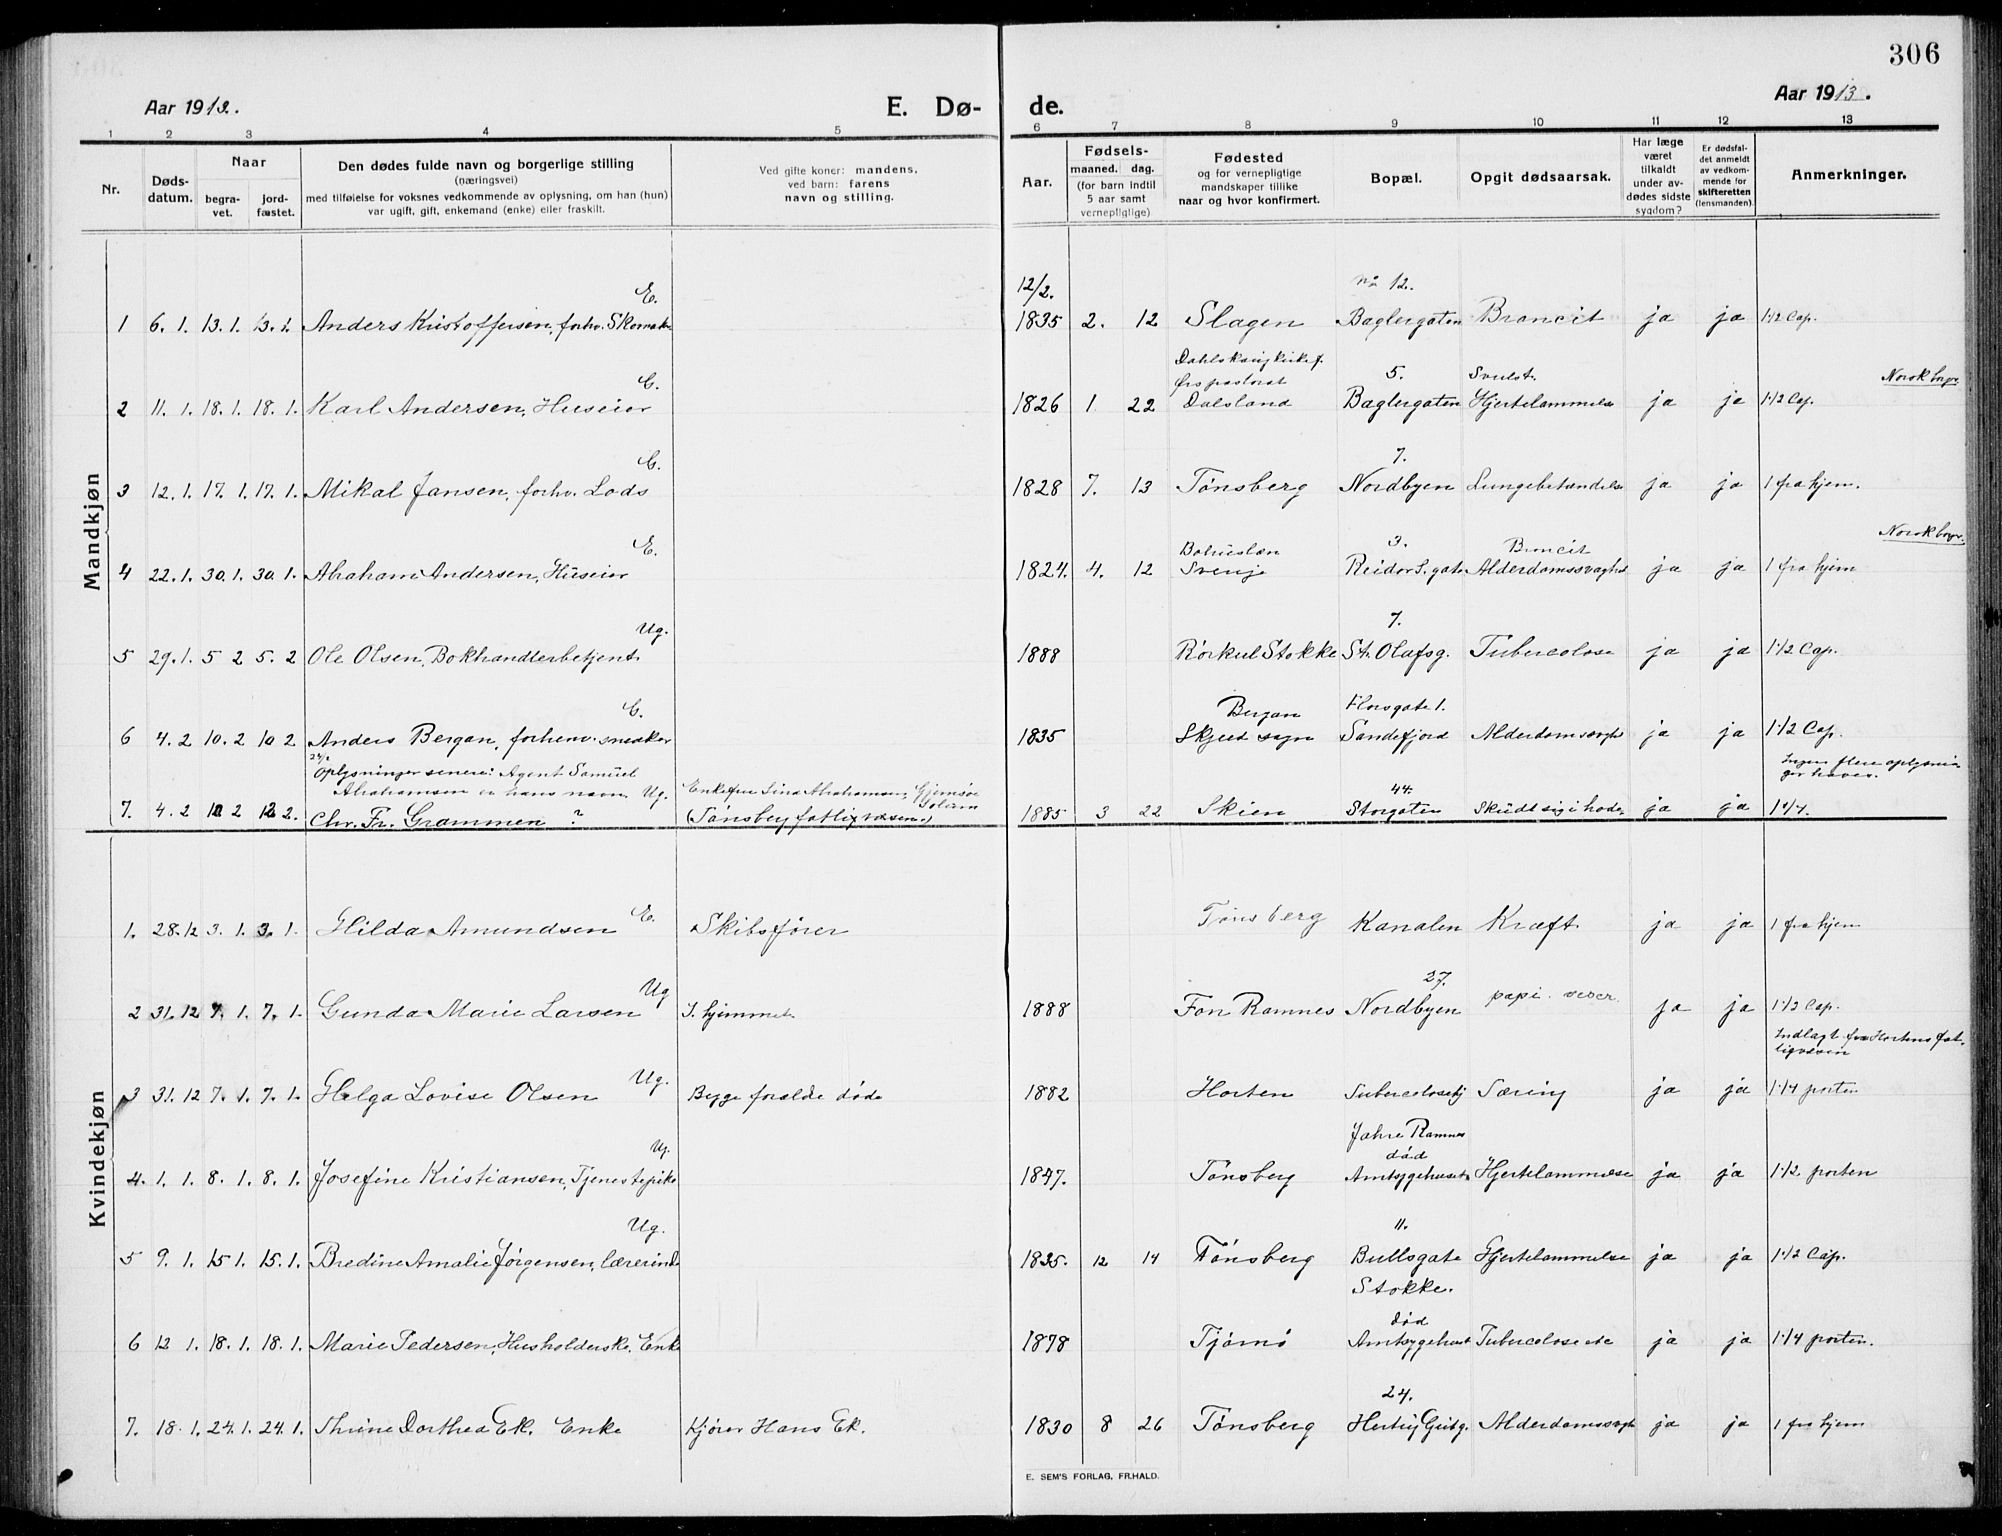 306
Aar 1913.
E. Dø-
de.
Aar 1913.
1 2 3 4 5 6 7 8 9 10 11 12 13
Nr.
Døds-
datum.
Naar
begra-
vet.
jord-
fæstet.
Den dødes fulde navn og borgerlige stilling
(næringsvei)
med tilføielse for voksnes vedkommende av oplysning, om han (hun)
var ugift, gift, enkemand (enke) eller fraskilt.
Ved gifte koner: mandens.
ved barn: farens
navn og stilling.
Aar.
Fødsels-
maaned. dag.
(for barn indtil
5 aar samt
vernepligtige)
Fødested
og for vernepligtige
mandskaper tillike
naar og hvor konfirmert.
Bopæl.
Opgit dødsaarsak.
Har læge
været
tilkaldt
under av-
dødes sidste
sygdom?
Er dødsfal-
det anmeldt
av vedkom-
mende for
skifteretten
(lensmanden).
Anmerkninger.
Mandkjøn
E. 12/2. 12.
1 6. 1. 13. 1. 13. 1. Anders Kristoffersen, forhv. Skomaker 1835 2. 12 Slagen Baglergaten Broncit ja ja 1 1/2 Cap.
Dahlskog kirke f.
G. Ørs pastorat 5. Svulst. Norsk borger
2 11. 1. 18. 1. 18. 1. Karl Andersen, Huseier 1826 1 22 Dalsland Baglergaten Hjertelammelse ja ja 1 1/2 Cap.
G. 7.
3 12. 1. 17. 1. 17. 1. Mikal Jansen, forhv. Lods 1828 7. 13 Tønsberg Nordbyen Lungebetændelse ja ja 1 fra hjem.
E. Bohuslæn 3. Broncit Norsk borger
4 22. 1. 30. 1. 30. 1. Abraham Andersen, Huseier 1824. 4. 12 Sverig Reidar S. gate Alderdomssvaghed ja ja 1 fra hjem
Ug. 7.
5 29. 1. 5 2 5. 2 Ole Olsen, Bokhandlerbetjent 1888 Rørkul Stokke St. Olafsg. Tubercolose ja ja 1 1/2 Cap.
G. Bergan gate 1.
6 4. 2 10. 2 10 2 Anders Bergan, forhenv. snedker 1835 Skjee sogn Sandefjord Alderdomsvagh ja ja 1 1/2 Cap.
Oplysninger senere: Agent Samuel Ingen flere oplysnin
Abrahamsen er hans navn. Ug. Enkefru Lina Abrahamsen, Gjemsøe Solum 44. ger haves.
7. 4. 2 12 2 12 2. Chr. Fr. Grammen ? (Tønsberg fattigvæsen.) 1885 3 22 Skien Storgaten Skudt sig i hode. ja ja 1 1/4.
Kvindekjøn
E.
1. 28. 12 3. 1. 3. 1. Hilda Amundsen Skibsfører Tønsberg Kanalen Kræft ja ja 1 fra hjem
Ug 27.
2 31. 12 7. 1. 7. 1. Gunda Marie Larsen I hjemmet 1888 Fon Ramnes Nordbyen ja ja 1 1/2 Cap.
Indlagt fra Hortens fat-
Ug. tigvæsen
3 31. 12 7. 1. 7. 1. Helga Lovise Olsen Begge forældre døde 1882 Horten Tubercolosehj Tæring ja ja 1 1/4 porten
Ug. Jahre Ramnes
død
4. 1. 1. 8. 1. 8. 1. Josefine Kristiansen, Tjenestepike 1847. Tønsberg Amtsygehuset Hjertelammelse ja ja 1 1/2. porten
Ug. 11.
5 9. 1. 15 1. 15. 1. Bredine Amalie Jørgensen, lærerinde 1835. 12 14 Tønsberg Bullsgate Hjertelammelse ja ja 1 1/2 Cap.
Stokke.
død
6 12 1. 18. 1. 18. 1. Marie Pedersen, Husholderske, Enke 1878 Tjømø Amtsygehuset Tubercolose ja ja 1 1/4 porten.
24.
7. 18. 1. 24. 1. 24. 1. Thrine Dorthea Ek. Enke Kjører Hans Ek. 1830 8 26 Tønsberg Hertug Gutg. Alderdomssvagh ja ja 1 fra hjem
E. SEM'S FORLAG, FR.HALD.